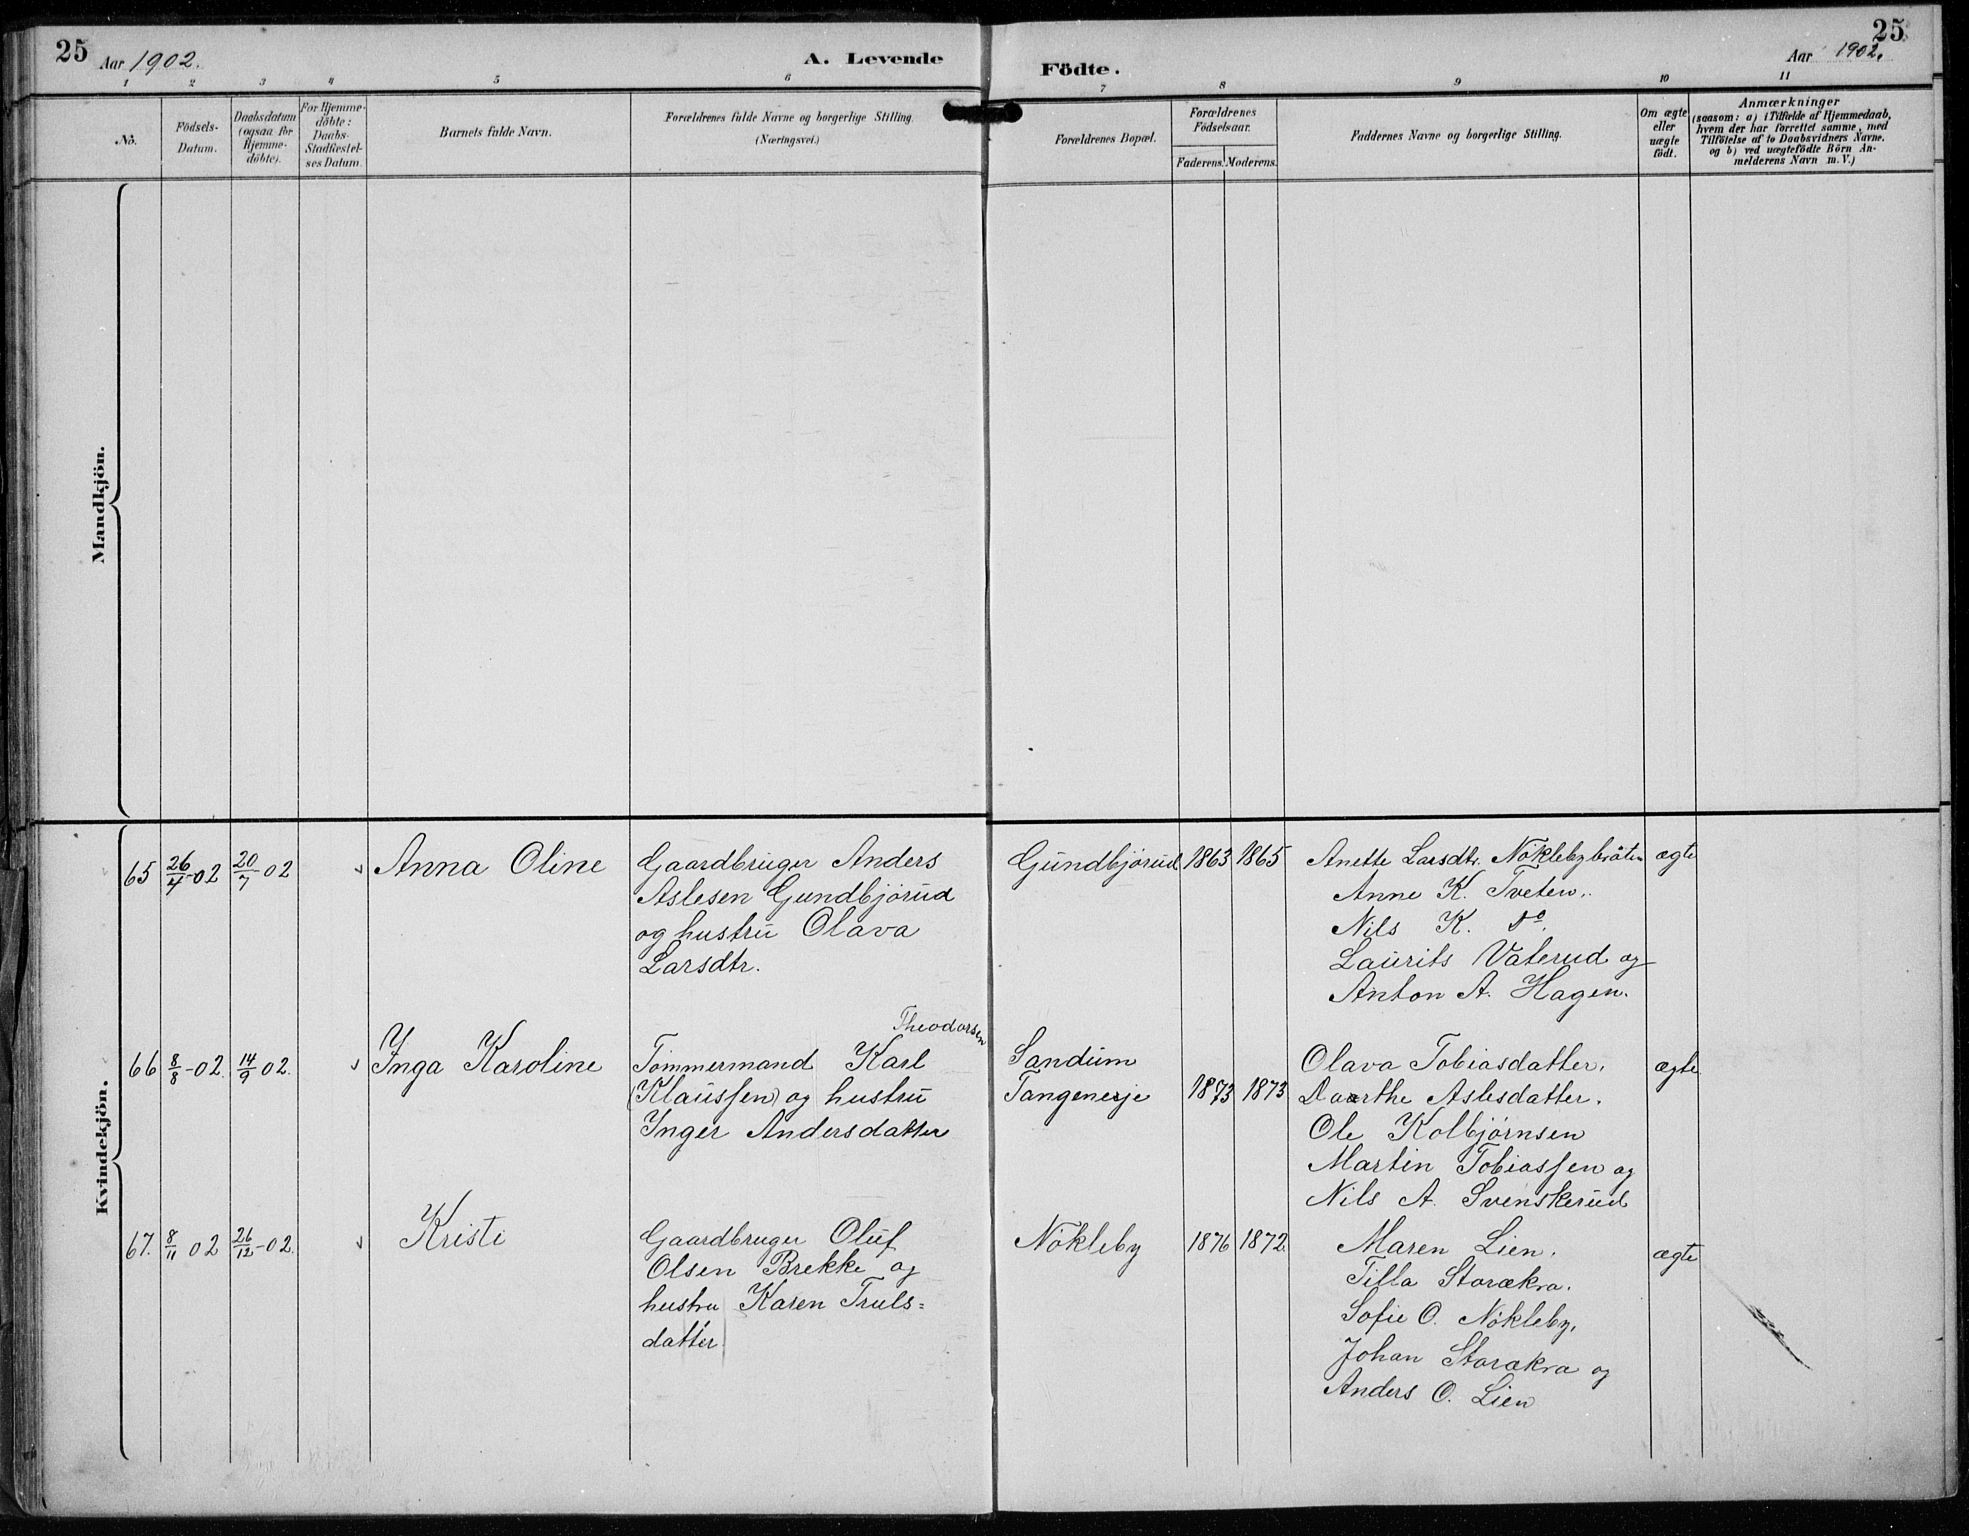 25
Aar 1902.
A. Levende
Födte.
Aar 1902.
25
1 2 3 4 5 6 7 8 9 10 11
No.
Födsels-
Datum.
Daabsdatum
(ogsaa for
Hjemme-
döbte).
For Hjemme-
döbte:
Daabs-
Stadfæstel-
ses Datum.
Barnets fulde Navn.
Forældrenes fulde Navne og borgerlige Stilling
(Næringsvei.)
Forældrenes Bopæl.
Forældrenes
Födselsaar.
Faderens. Moderens.
Faddernes Navne og borgerlige Stilling.
Om ægte
eller
uægte
födt.
Anmærkninger
(saasom: a) i Tilfælde af Hjemmedaab,
hvem der har forrettet samme, med
Tilföielse af to Daabsvidners Navne.
og b) ved uægtefödte Börn An-
melderens Navn m. V.)
Mandkjön.
Kvindekjön.
65 26/4-02 20/7-02 Anna Oline
Gaardbruger Anders
Aslesen Gundbjørud
og hustru Olava
Larsdtr.
Gundbjørud 1863 1865
Anette Larsdtr. Nöklebybråten
Anne K. Tveten.
Nils K. do.
Laurits Vaterud og
Anton A. Hagen.
ægte
66 8/8-02. 14/9 02. Inga Karoline
Theodorsen
Tømmermand Karl
(Klaussen) og hustru
Inger Andersdatter
Sandum
Tangeneje 1873 1873
Olava Tobiasdatter.
Daarthe Aslesdatter.
Ole Kolbjørnsen
Martin Tobiassen og
Nils A. Svenskerud
ægte
67. 8/11 02 26/12-02. Kristi
Gaardbruger Oluf
Olsen Brekke og
hustru Karen Truls=
datter
Nökleby 1876 1872.
Maren Lien.
Tilla Storækra.
Sofie O. Nökleby.
Johan Storækra og
Anders O. Lien
ægte